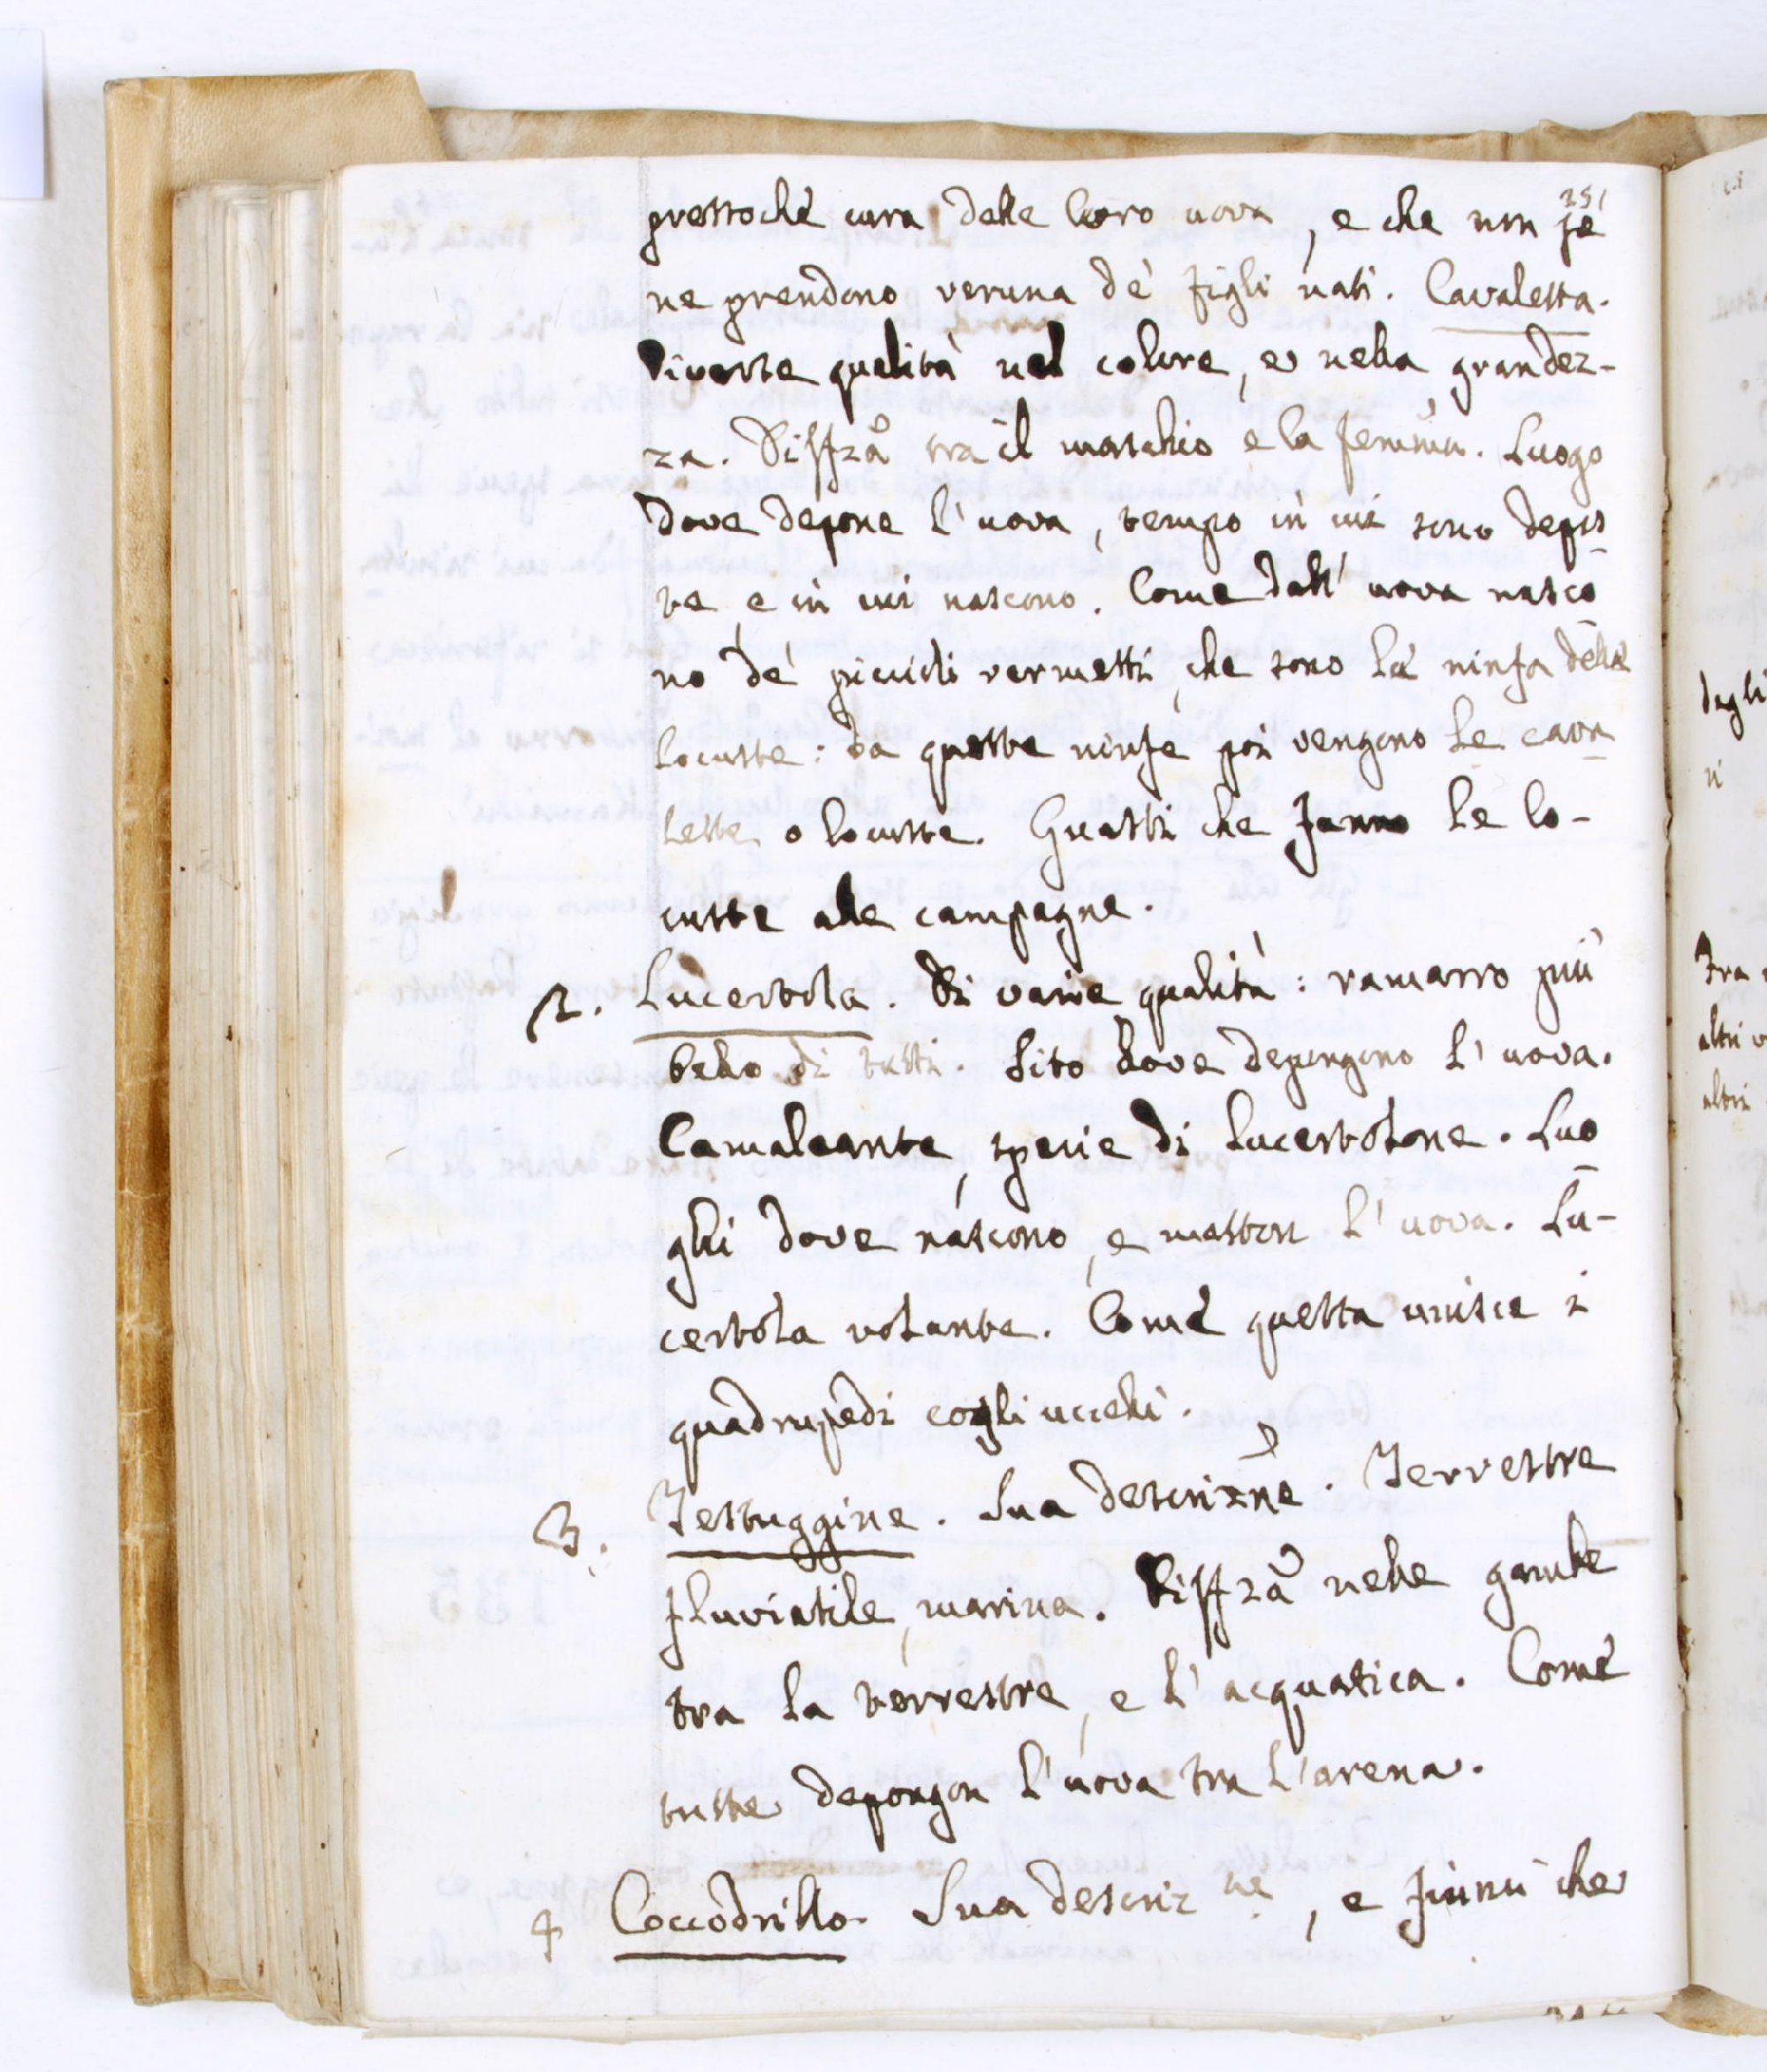 251
prestochè cura delle loro uova, e che non se
ne prendono veruna de' figli nati. Cavaletta.
Diverse qualità nel colore, e nella grandez-
za. Diffza tra il maschio e la femina. Luogo
dove depone l'uova, tempo in cui sono depos
te e in cui nascono. Come dall'uova nasco
no de' piccioli vermetti, che sono la ninfa delle
locuste: da queste ninfe poi vengono le cava
lette o locuste. Guasti che fanno le lo-
custe alle campagne.
2. Lucertola. Di varie qualità: ramarro più
bello di tutti. Sito dove depongono l'uova.
Camaleante, specie di Lucertolone. Luo
ghi dove nascono, e metton l'uova. Lu-
certola volante. Come questa unisce i
quadrupedi cogli uccelli.
3. Testuggine. Sua descrizne. Terrestre
fluviatile, marina. Diffza nelle gambe
tra la terrestre, e l'acquatica. Come
tutte depongon l'uova tra l'arena.
4 Coccodrillo. Sua descriz ne, e fiumi che
degli
fra
altri
altri